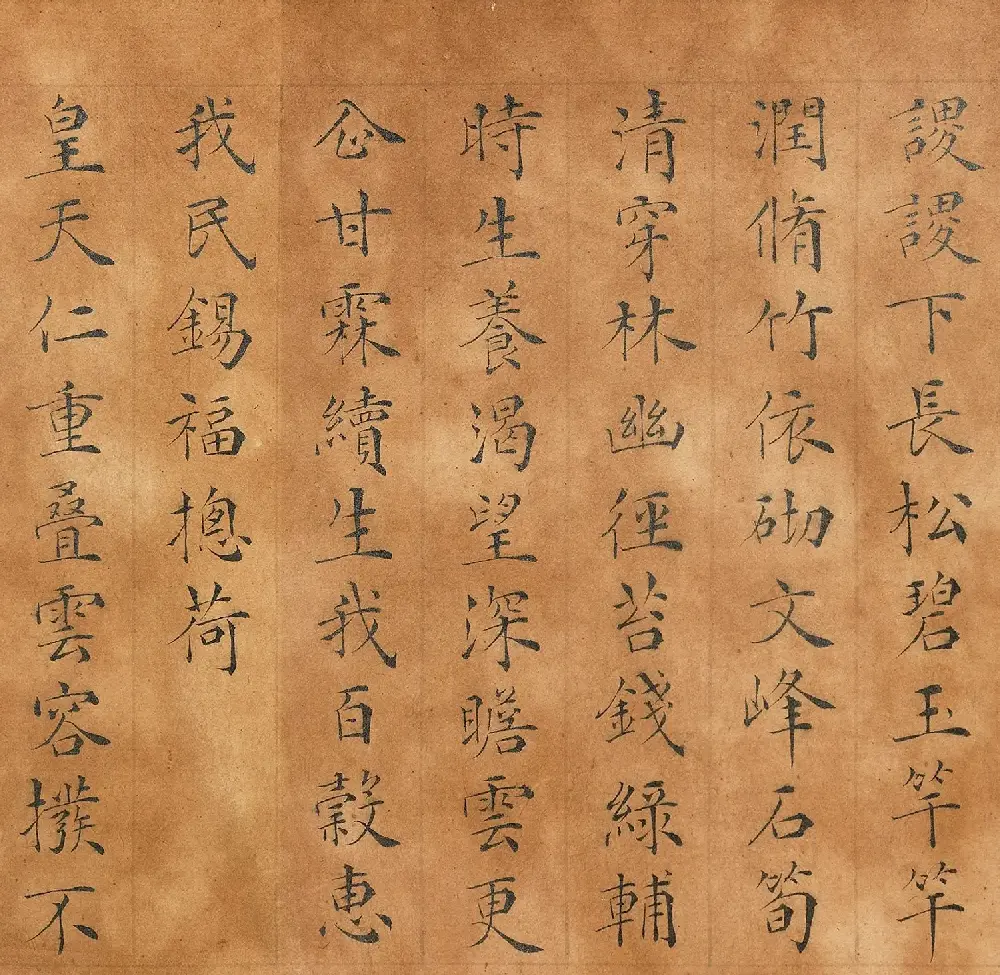 謖謖下長松碧玉竿竿
潤脩竹依砌文峰石筍
清穿林幽徑苔錢綠輔
時生養渴望深瞻雲更
仚甘霖續生我百穀惠
我民錫福揔荷
皇天仁重疊雲容撲不